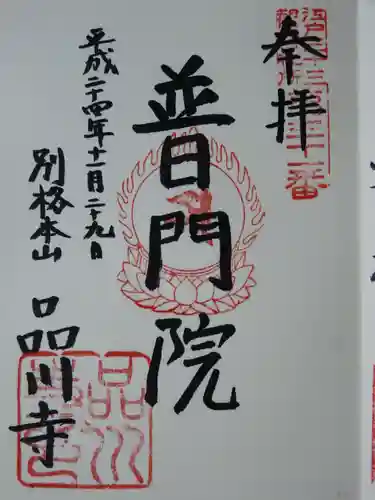 奉拝
普門院
平成二十四年十一月二十九日
別格本山
品川寺